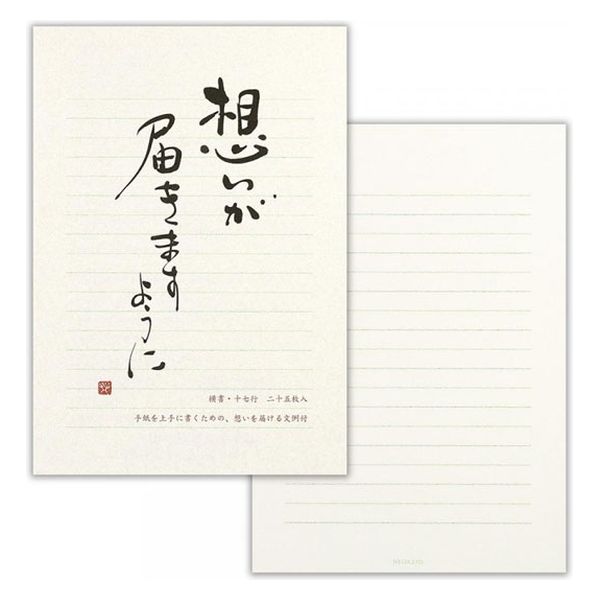 想いが
届きます
ように
横書・十七行 二十五枚入
手紙を上手に書くための、想いを届ける文例付